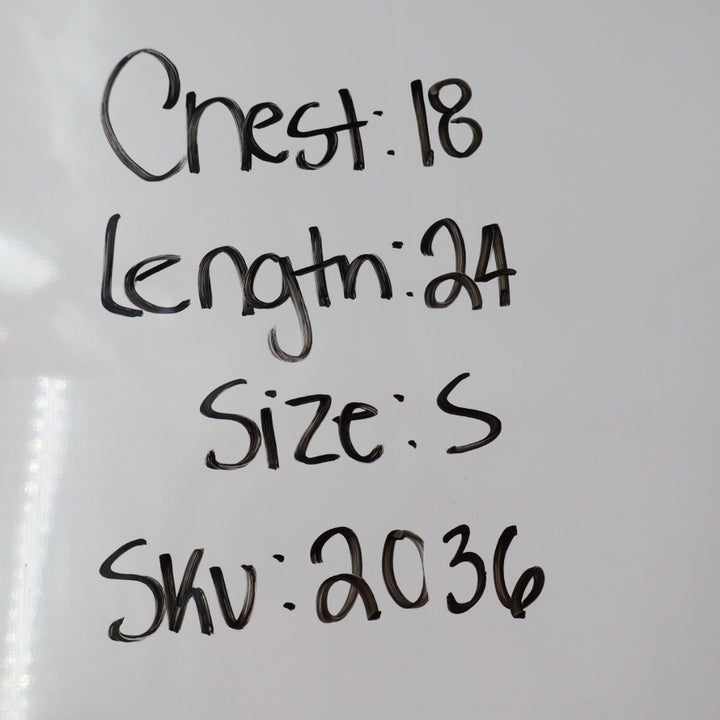 Chest: 18
Length: 24
Size: S
Sku: 2036